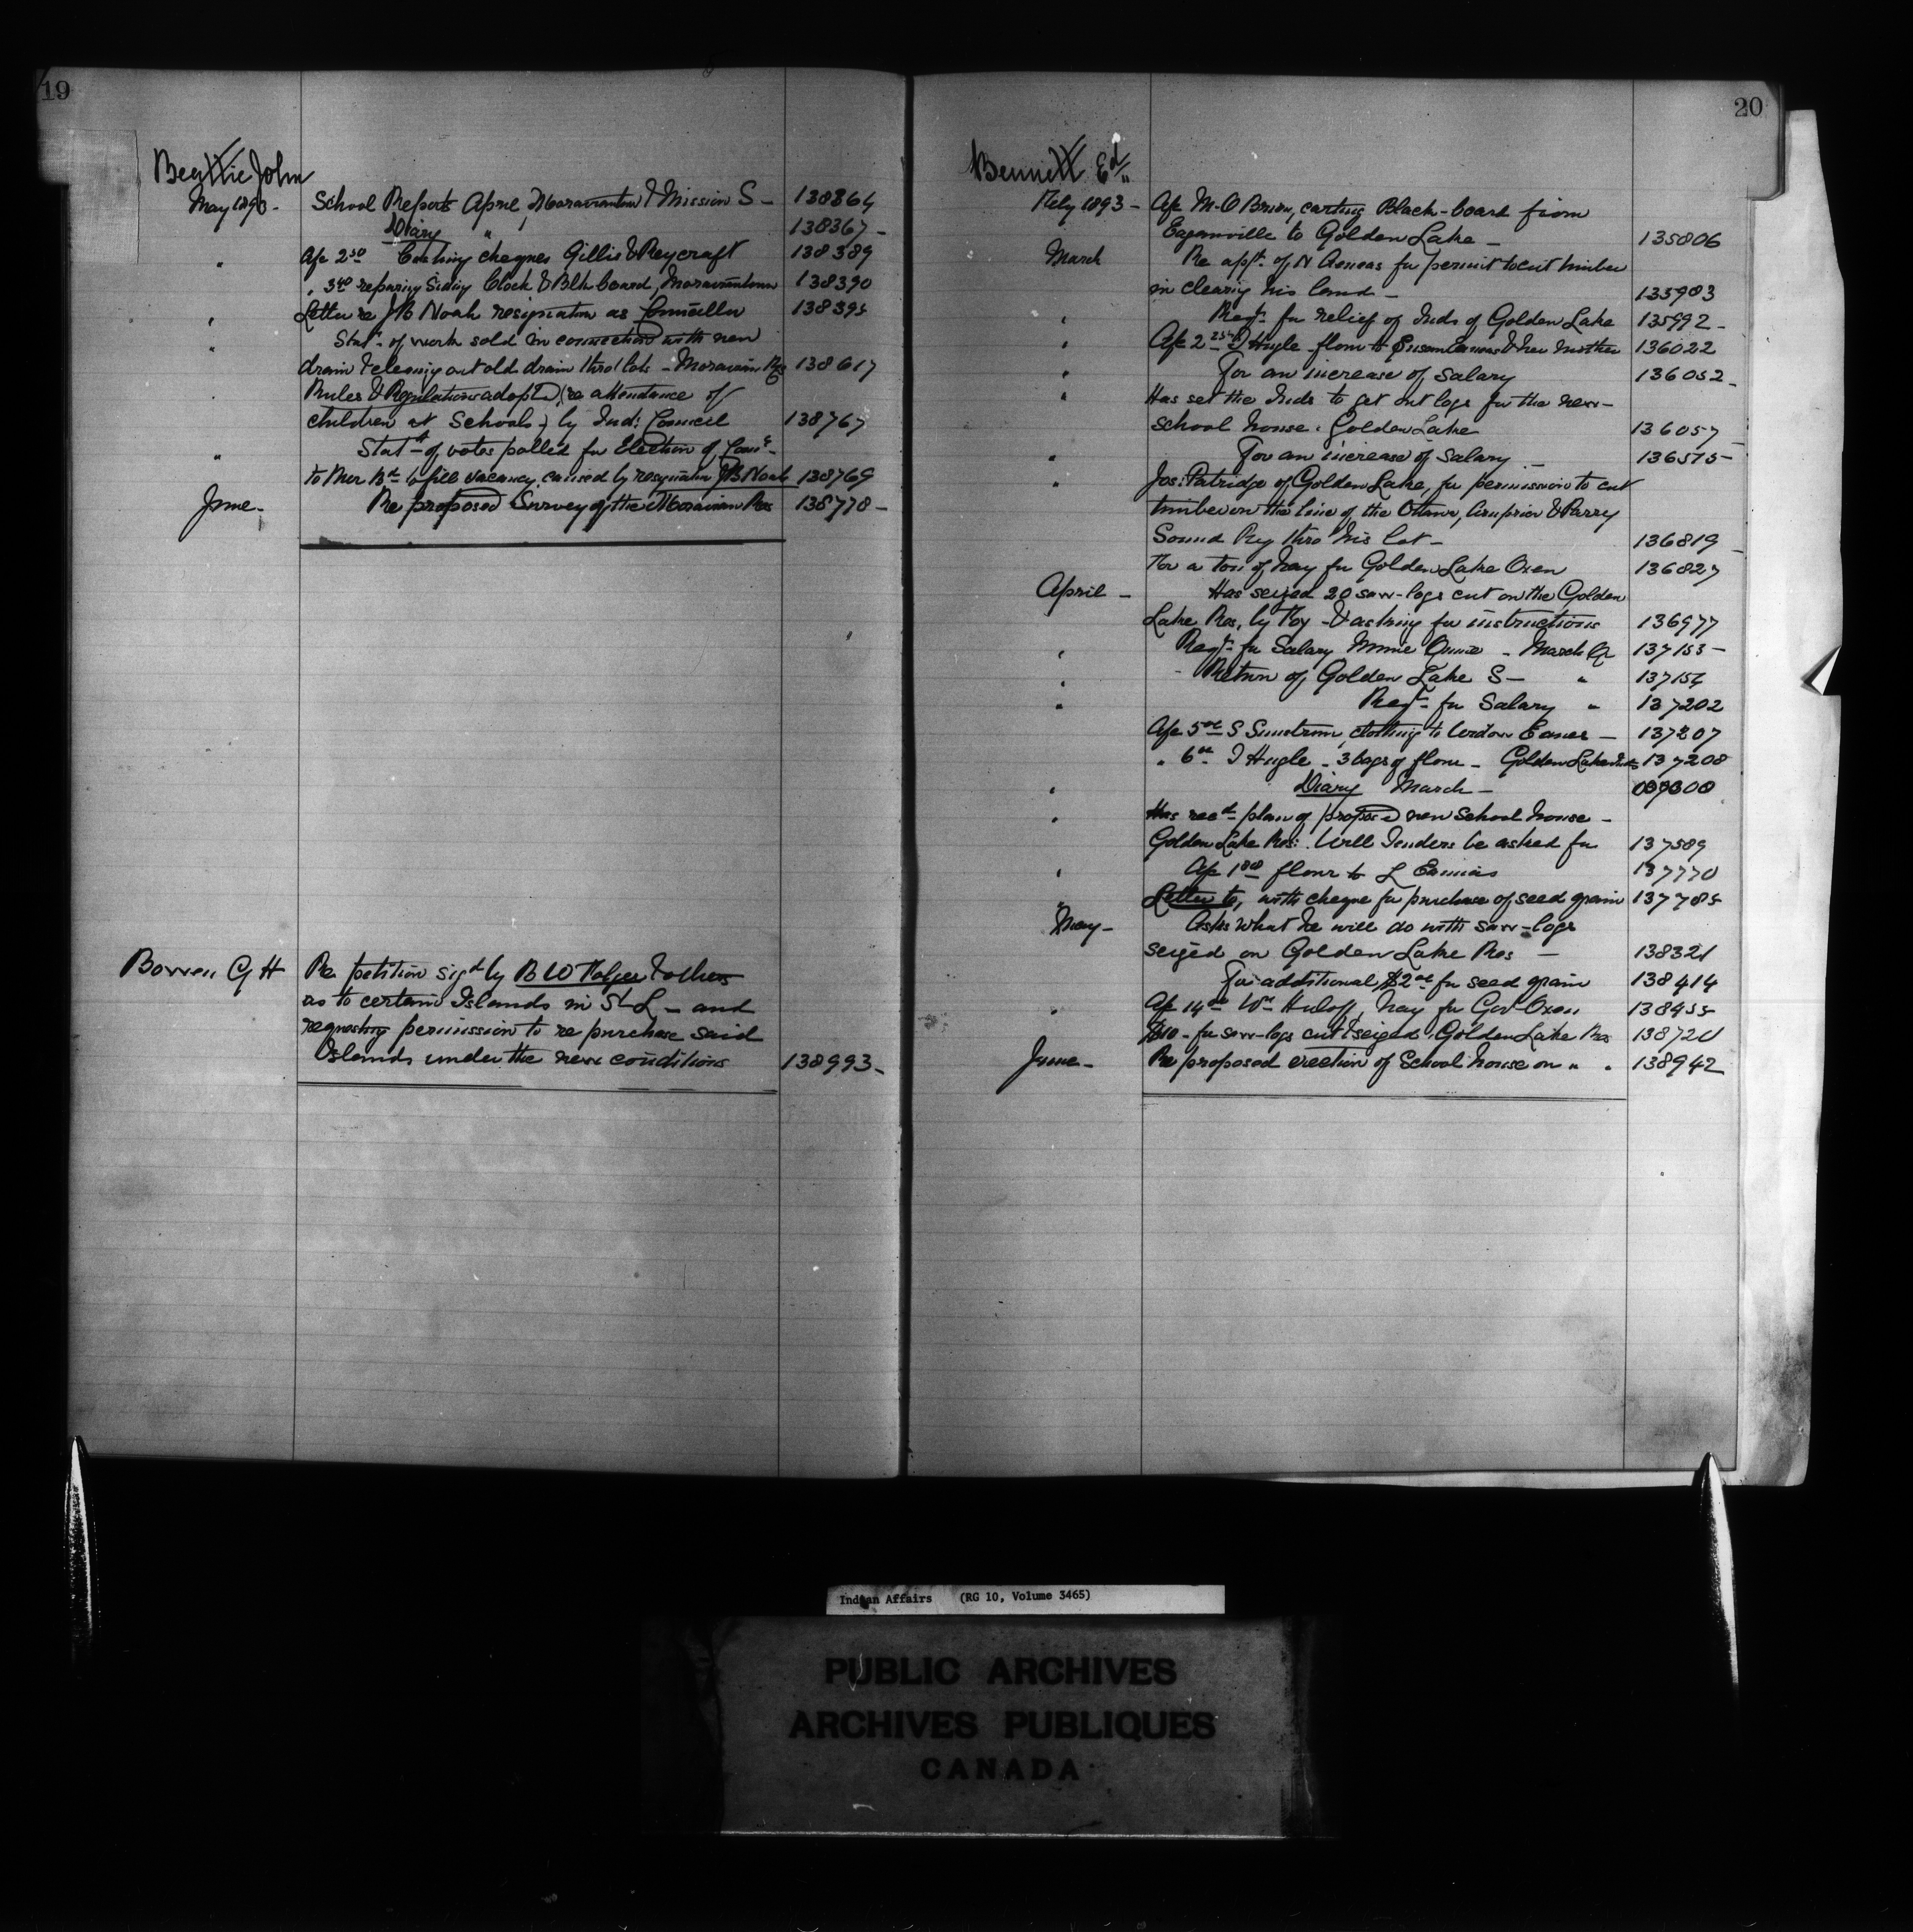 19
Beattie John
May 1893 - School Reports April, Moraviantown & Mission S - 138364
Diary " 138367 -
" Ap 2.50 Cashing cheques Gillis & Reycraft 138389
" 3.40 repairing Siding Clock & Blk board, Moraviantown 138390
" Letter re J B Noah resignation as Councillor 138395
" Stat. of work sold in connection with new
drain & cleaning out old drain thro' lots - Moravian Res 138617
Rules & Regulations adopted (re attendance of
children at Schools) by Ind: Council 138767
" Stat of votes polled for Election of Counr
to fill vacancy caused by resignation J B Noah 138769
June - Re proposed Survey of the Moravian Res 138778 -
Bowen G H Re petition sigd by B W Folger & others
as to certain Islands in St L - and
requesting permission to re purchase said
Islands under the new conditions 138993 -
20
Bennett Ed
Feby 1893 - Ap M. O Brien, carting Black-board from
Eaganville to Golden Lake - 135806
March Re appn of N Aeneas for permit to cut timber
in clearing his land - 135983
" Reqn for relief of Inds of Golden Lake 135992 -
" Ap 2.25 I Hugle flour to & her mother 136022
" For an increase of salary 136052 -
" Has set the Inds to get out logs for the new
school house. Golden Lake 136057 -
" For an increase of salary - 136515 -
" Jos: Patridge of Golden Lake, for permission to cut
timber on the line of the Ottawa, Arnprior & Parry
Sound Ry thro his lot - 136819 -
For a ton of hay for Golden Lake Oxen 136827
April - Has seized 20 saw-logs cut on the Golden
Lake Res, by & asking for instructions 136977
" Reqn for Salary - March Qr 137153 -
" Return of Golden Lake S - " 137154
" Reqn for Salary " 137202
Ap 5.00 S clothing to Widow - 137207
" 6.00 I Hugle - 3 bags of flour - Golden Lake Inds 137208
" Diary March -
" Has recd plan of proposed new School house -
Golden Lake Res: Will Tenders be asked for 137589
" Ap 1.80 flour to L 137770
" Letter to, with cheque for purchase of seed grain 137785
May - Asks what he will do with saw-logs
seized on Golden Lake Res - 138321
For additional $2.00 for seed grain 138414
" Ap 14.00 Wm hay for Gov Oxen 138455
$10 - for saw-logs cut & seized. Golden Lake Res 138720
June - Re proposed erection of School house on " " 138942
Indian Affairs (RG 10, Volume 3465)
PUBLIC ARCHIVES
ARCHIVES PUBLIQUES
CANADA